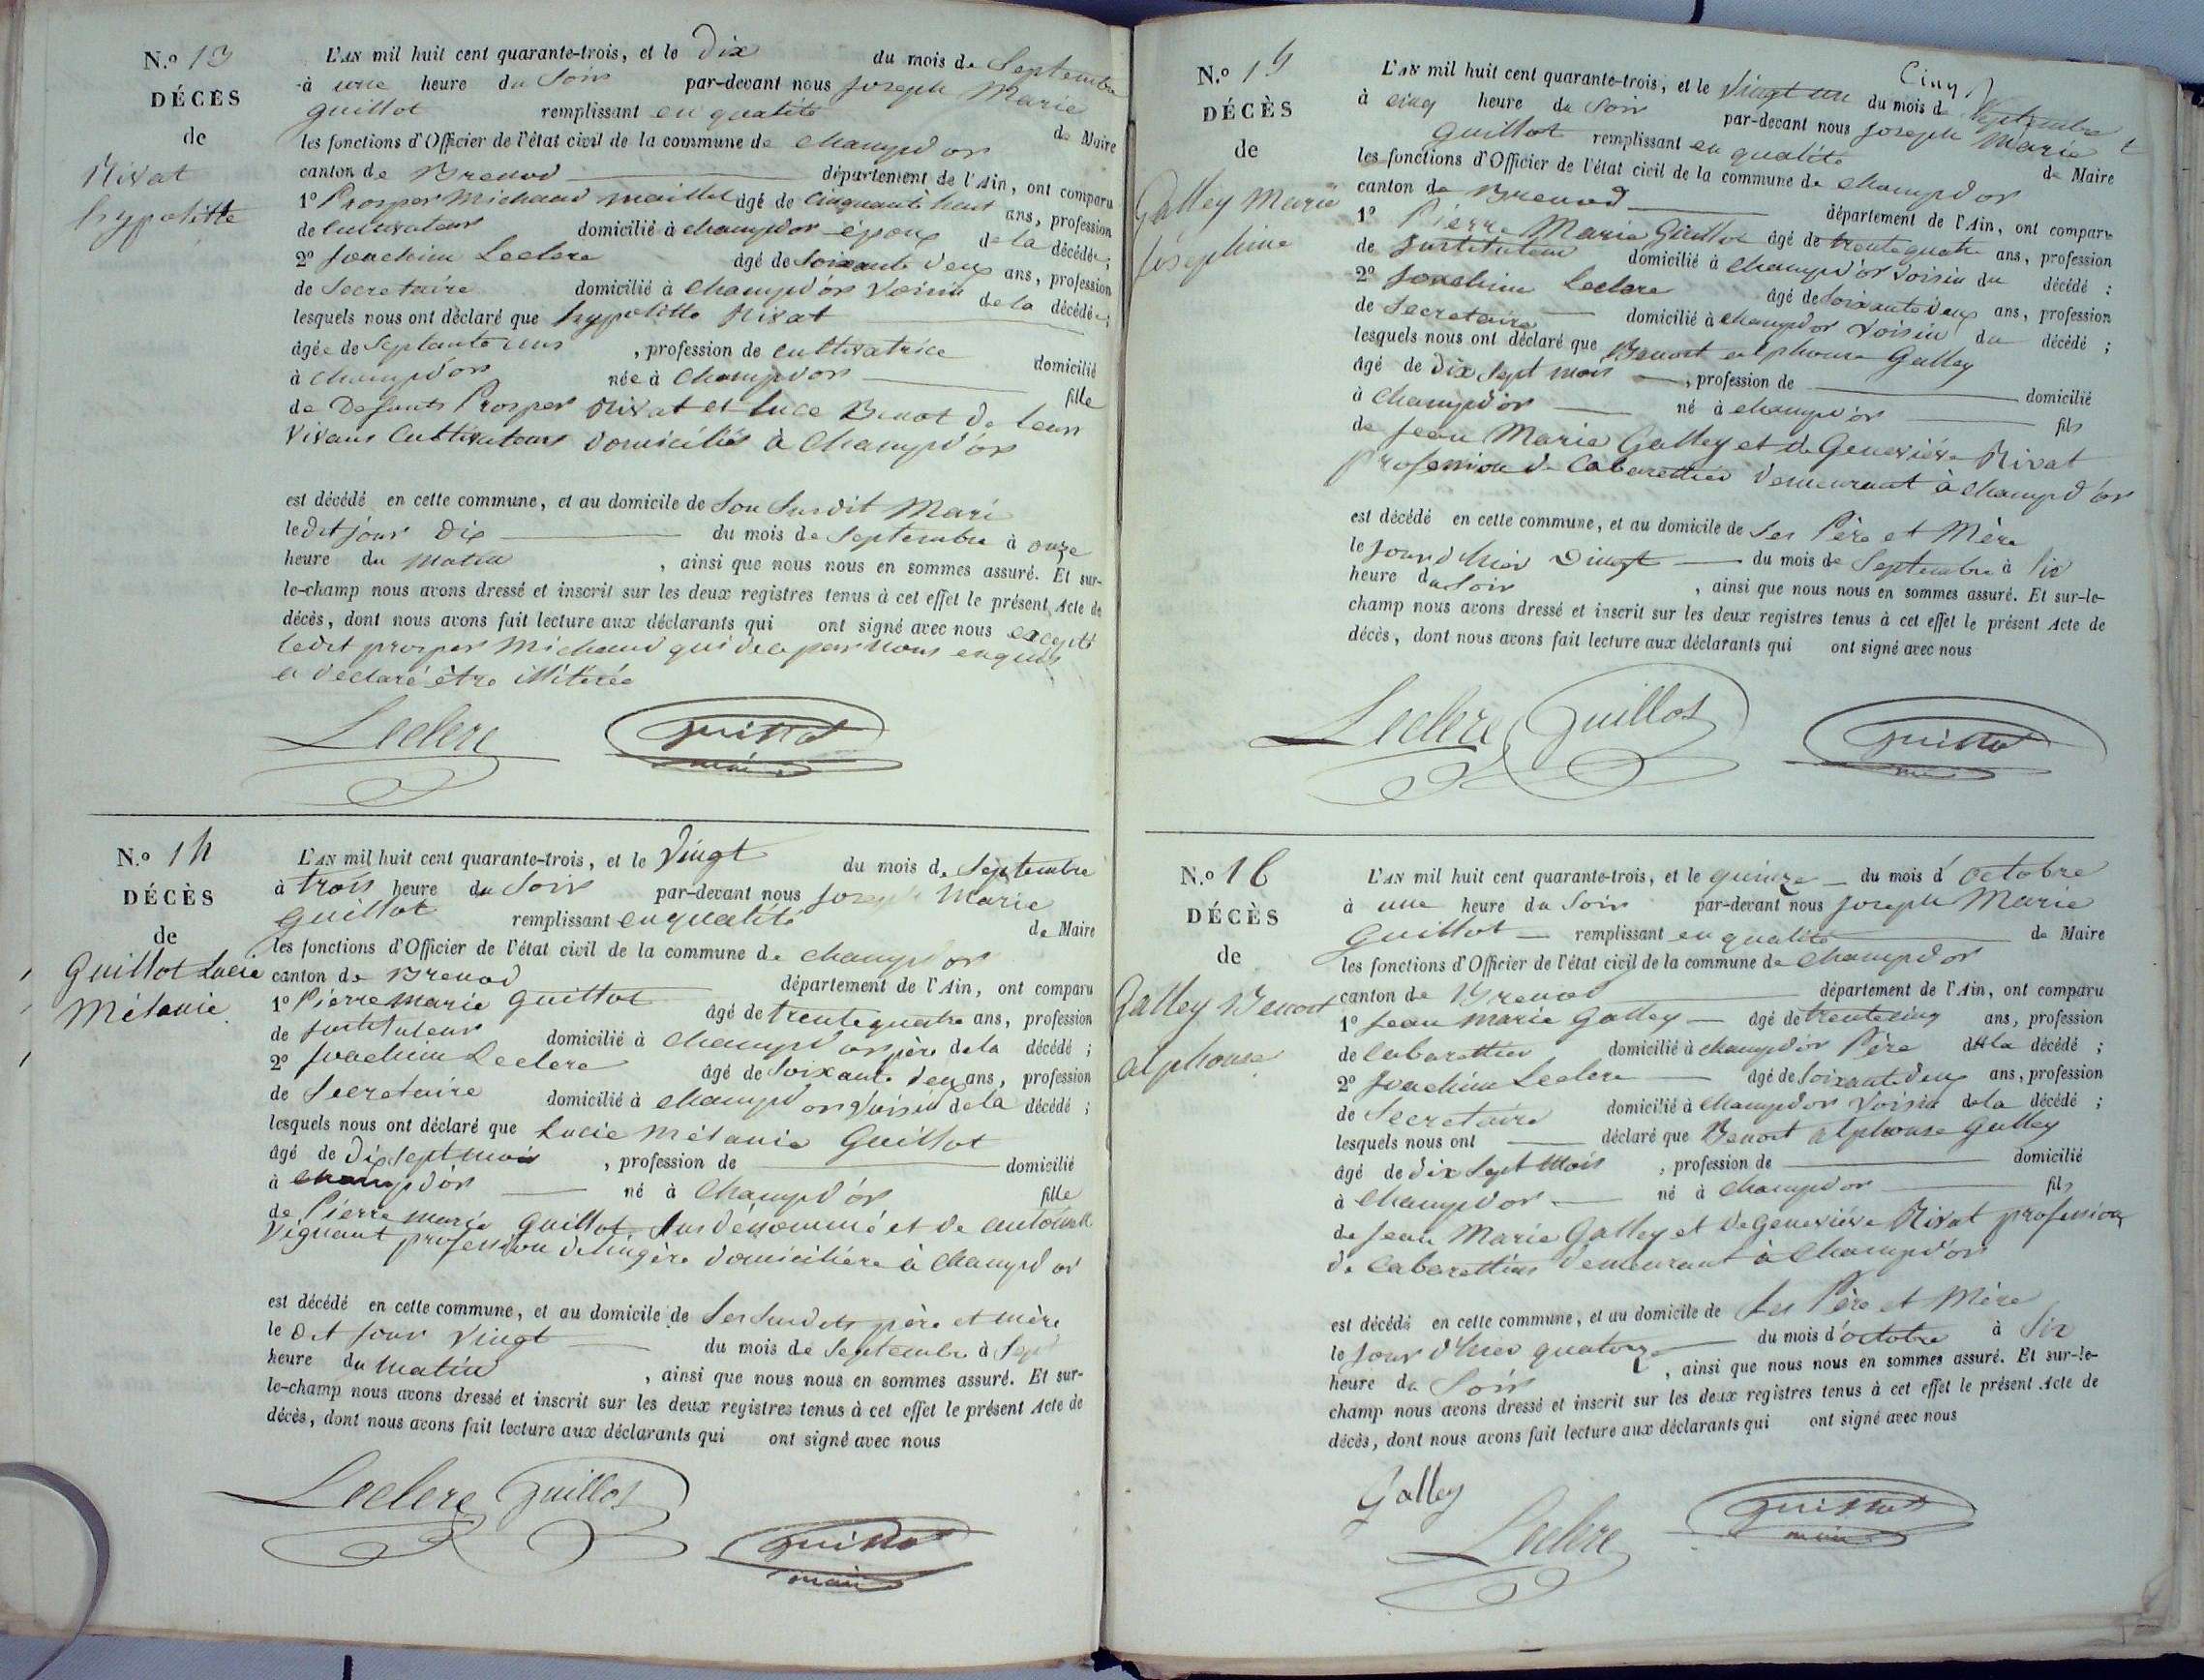 N.º 13
DÉCÈS
de
Nivat
hypolitte
L'AN mil huit cent quarante-trois, et le Dix du mois de Septembre
à une heure du Soir par-devant nous Joseph Marie
Guillot remplissant en qualité de Maire
les fonctions d'Officier de l'état civil de la commune de Champd'or
canton de Brenod département de l'Ain, ont comparu
1º Prosper Michaud maillet âgé de Cinquante huit ans, profession
de Cultivateur domicilié à champd'or époux de la décédée;
2º Joachim Leclerc âgé de Soixante deux ans, profession
de Secretaire domicilié à Champd'or Voisin de la décédée;
lesquels nous ont déclaré que hypolitte Nivat
âgée de Septante uns , profession de cultivatrice domicilié
à Champd'or née à Champd'or fille
de Defunts Prosper Nivat et Luce Benot de leur
Vivans Cultivateurs domiciliés à Champd'or
est décédé en cette commune, et au domicile de Son Susdit Mari
ledit jour Dix du mois de Septembre à onze
heure du Matin , ainsi que nous nous en sommes assuré. Et sur-
le-champ nous avons dressé et inscrit sur les deux registres tenus à cet effet le présent Acte de
décès, dont nous avons fait lecture aux déclarants qui ont signé avec nous excepté
ledit prosper Michaud qui de ce par Nous enquis
a déclaré être illitérée
Leclerc Guillot
maire
N.º 14
DÉCÈS
de
Guillot Lucie
Mélanie
L'AN mil huit cent quarante-trois, et le Vingt du mois de Septembre
à trois heure du Soir par-devant nous Joseph Marie
Guillot remplissant en qualité de Maire
les fonctions d'Officier de l'état civil de la commune de Champd'or
canton de Brenod département de l'Ain, ont comparu
1º Pierre marie Guillot âgé de trente quatre ans, profession
de Instituteur domicilié à Champd'or père de la décédé;
2º Joachim Leclerc âgé de Soixante deux ans, profession
de Secretaire domicilié à Champd'or Voisin de la décédé;
lesquels nous ont déclaré que Lucie Mélanie Guillot
âgé de Dix Sept mois , profession de domicilié
à Champd'or né à Champd'or fille
de Pierre marie Guillot Susdénommé et de
Vignant profession de lingère domicilière à Champd'or
est décédé en cette commune, et au domicile de Ses Susdits père et mère
le Dit Jour Vingt du mois de Septembre à Sept
heure du Matin , ainsi que nous nous en sommes assuré. Et sur-
le-champ nous avons dressé et inscrit sur les deux registres tenus à cet effet le présent Acte de
décès, dont nous avons fait lecture aux déclarants qui ont signé avec nous
Leclerc Guillot
Guillot
maire
N.º 15
DÉCÈS
de
Galley Marie
Joséphine
Cinq
L'AN mil huit cent quarante-trois, et le Vingt un du mois de Septembre
à cinq heure du Soir par-devant nous Joseph Marie
Guillot remplissant en qualité de Maire
les fonctions d'Officier de l'état civil de la commune de Champd'or
canton de Brenod département de l'Ain, ont comparu
1º Pierre Marie Guillot âgé de trente quatre ans, profession
de Instituteur domicilié à Champd'or Voisin du décédé;
2º Joachim Leclerc âgé de Soixante deux ans, profession
de Secretaire domicilié à Champd'or Voisin du décédé;
lesquels nous ont déclaré que Benoit alphonse Galley
âgé de Dix Sept mois , profession de domicilié
à Champd'or né à Champd'or fils
de Jean Marie Galley et de Geneviéve Nivat
profession de Cabarettier demeurant à Champd'or
est décédé en cette commune, et au domicile de Ses Père et Mère
le Jour d'hier Vingt du mois de Septembre à Six
heure du Soir , ainsi que nous nous en sommes assuré. Et sur-le-
champ nous avons dressé et inscrit sur les deux registres tenus à cet effet le présent Acte de
décès, dont nous avons fait lecture aux déclarants qui ont signé avec nous
Leclerc Guillot Guillot
N.º 16
DÉCÈS
de
Galley Benoit
alphonse
L'AN mil huit cent quarante-trois, et le quinze du mois d'octobre
à une heure du Soir par-devant nous Joseph Marie
Guillot remplissant en qualité de Maire
les fonctions d'Officier de l'état civil de la commune de Champd'or
canton de Brenod département de l'Ain, ont comparu
1º Jean marie Galley âgé de trente cinq ans, profession
de Cabarettier domicilié à champd'or Père de la décédé;
2º Joachim Leclerc âgé de Soixante deux ans, profession
de Secretaire domicilié à Champd'or Voisin de la décédé;
lesquels nous ont déclaré que Benoit alphonse Galley
âgé de dix Sept Mois , profession de domicilié
à Champd'or né à Champd'or fils
de Jean Marie Galley et de Geneviéve Nivat profession
de Cabarettiers demeurant à Champd'or
est décédé en cette commune, et au domicile de Ses Père et Mère
le Jour d'hier quatorze du mois d'octobre à Six
heure du Soir , ainsi que nous nous en sommes assuré. Et sur-le-
champ nous avons dressé et inscrit sur les deux registres tenus à cet effet le présent Acte de
décès, dont nous avons fait lecture aux déclarants qui ont signé avec nous
Galley
Leclerc Guillot
maire